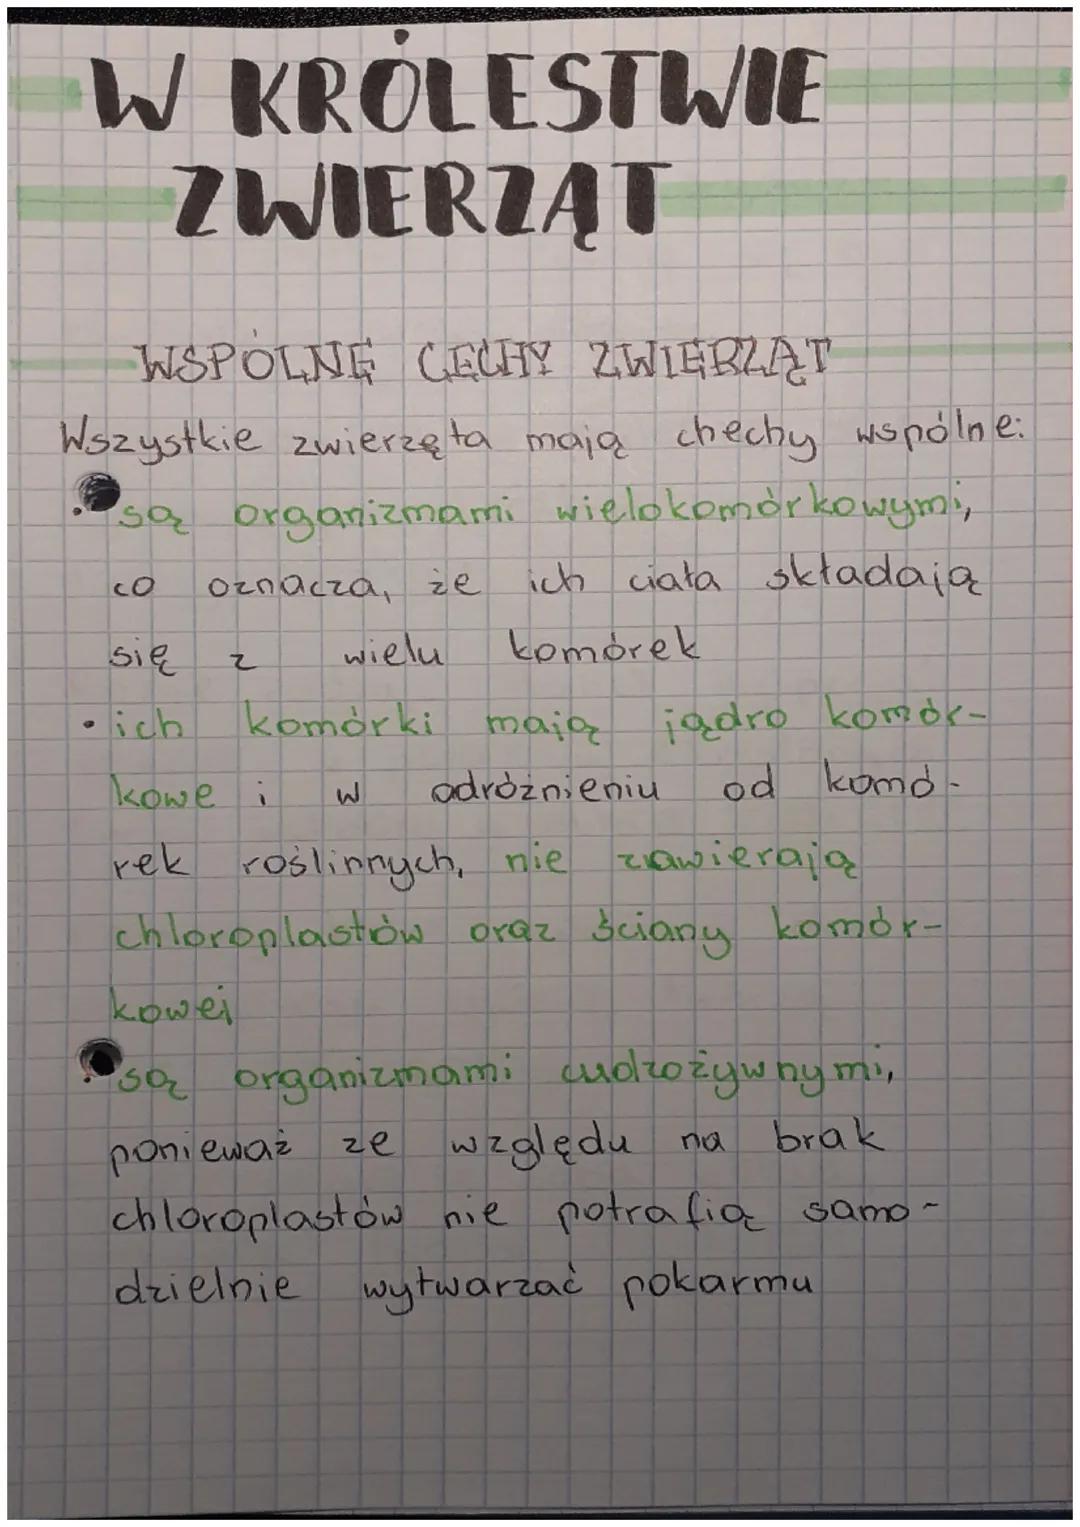 W KRÓLESTWIE
ZWIERZĄT
WSPÓLNE CECHY ZWIERZĄT
Wszystkie zwierzęta mają chechy wspólne:
• są organizmami wielokomórkowymi,
co oznacza, że ich ciała składają
się z wielu komórek
• ich komórki mają jądro komór-
kowe i w odróżnieniu od komó-
rek roślinnych, nie zawierają
chloroplastów oraz ściany komór-
kowej
• są organizmami cudzożywnymi,
ponieważ ze względu na brak
chloroplastów nie potrafią samo-
dzielnie wytwarzać pokarmu